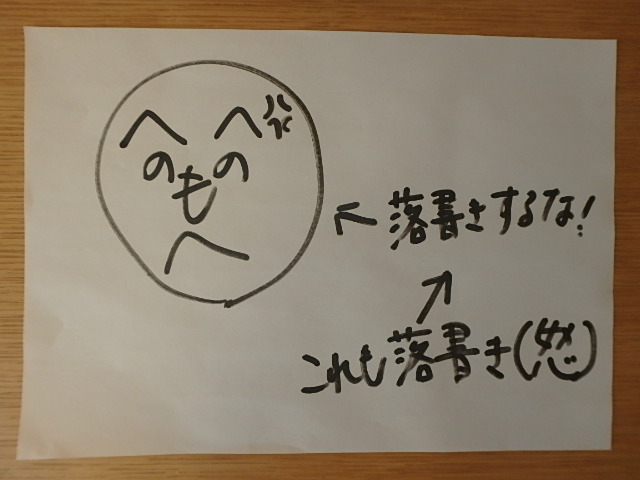 へへ
のの
も
へ
← 落書きするな!
↑
これも落書き(怒)